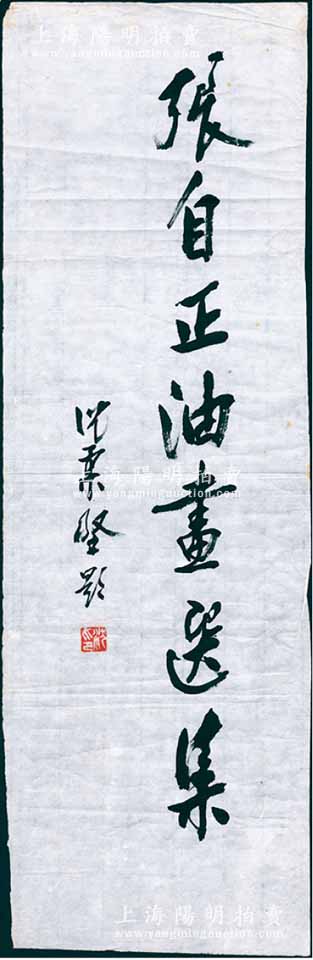 張自正油畫選集
沈柔堅題
上海陽明拍賣
www.yangmingauction.com
上海陽明拍賣
www.yangmingauction.com
上海陽明拍賣
www.yangmingauction.com